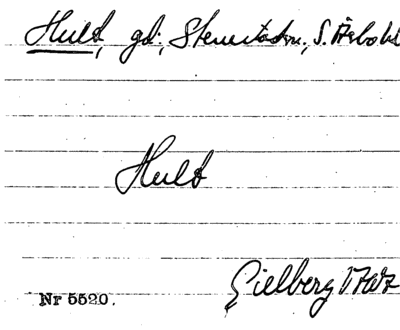 Hult, gd., Stenestads sn., S. Åsbo hd
Hult
Gielberg 1742
Nr 5520.